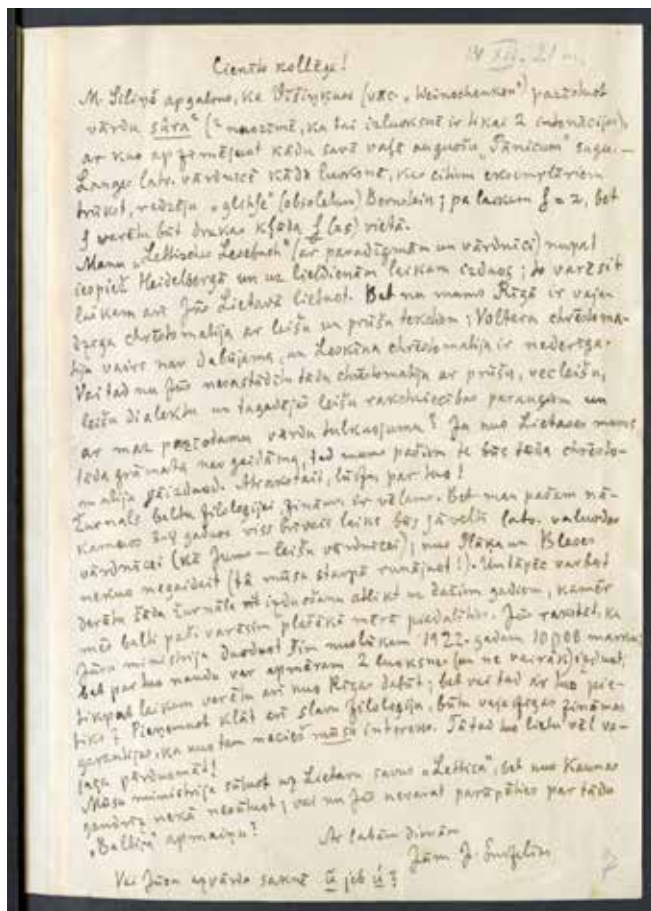 Cienīts kollēga!
19 XII. 21 m.
M. Siliņš apgalvo, ka Vīsiņkuos (vāc. „Weinschenken") pazīstuot
vārdu sūra² (² nuozīmē, ka tai izluoksnē ir tikai 2 intonācijas),
ar kuo apzīmējuot kādu savā vaļā augušu „Pānicum" sugu. —
Langes latv. vārdnīcā kāda luoksnē, kas citiem eksemplāriem
trūkst, redzēju „glihse" (obsoletum) Bernstein; pa laikam ſ = z, bet
ſ varētu būt drukas kļūda ſ (as) vietā.
Manu „Lettisches Lesebuch" (ar paradigmām un vārdnīcu) nupat
iespiež Heidelbergā un uz lieldienām laikam izduos; to varēsit
laikam arī Jūs Lietavā lietuot. Bet nu mums Rīgā ir vaja-
dzīga chrēstomatija ar leišu un prūšu tekstiem; Voltera chrēstoma-
tija vairs nav dabūjama, un Leskīna chrēstomatija ir nederīga.
Vai tad nu Jūs nesastādītu tādu chrēstomatiju ar prūšu, vecleišu,
leišu dialektu un tagadējās leišu rakstniecības paraugiem un
ar maz pazīstamu vārdu tulkuojumu? Ja nuo Lietavas mums
tāda grāmata nav gaidāma, tad mums pašiem te būs tāda chrēsto-
matija jāizduod. Atrakstait, lūdzu, par tuo!
Žurnāls baltu filoloģijai, zināms, ir vēlams. Bet man pašam nā-
kamuos 3-4 gaduos viss brīvais laiks būs jāveltī latv. valuodas
vārdnīcai (kā Jums — leišu vārdnīcai); nuo Plāķa un Bleses
nekuo negaidait (tā mūsu starpā runājuot!). Un tāpēc varbūt
derētu šāda žurnāla izduošanu atlikt uz dažiem gadiem, kamēr
mēs balti paši varēsim plašākā mērā piedalīties. Jūs rakstāt, ka
Jūsu ministrija duoduot šim nuolūkam 1922. gadam 10 000 marku;
bet par tuo naudu var apmēram 2 luoksnes (un ne vairāk) izduot;
tikpat laikam varētu arī nuo Rīgas dabūt; bet vai tad ar tuo pie-
tiks? Pieņemuot klāt arī slavu filoloģiju, būtu vajadzīgas zināmas
garantijas, ka nuo tam neciеš mūsu intereses. Tātad tuo lietu vēl va-
jaga pārdomāt!
Mūsu ministrija sūtuot uz Lietavu savus „Lettica", bet nuo Kaunas
gandrīz nekā nesaņemuot; vai nu Jūs nevarat parūpēties par tādu
„Baltica" apmaiņu?
Ar labām dienām
Jūsu J. Endzelīns
Vai Jūsu uzvārda saknē ū jeb ú?
7